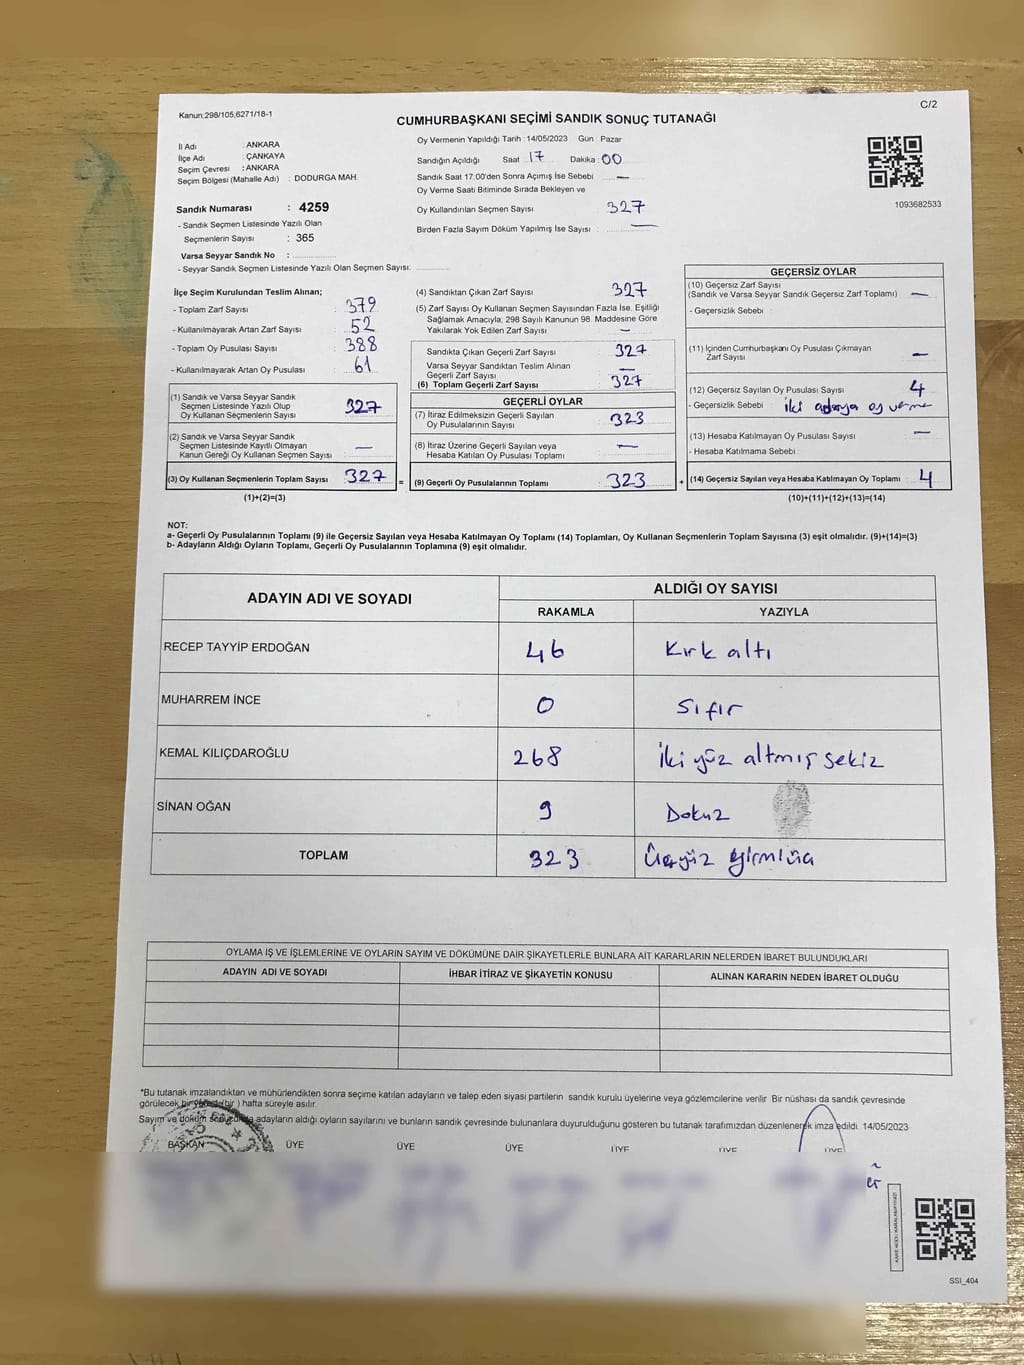 Kanun:298/105;6271/18-1
C/2
CUMHURBAŞKANI SEÇİMİ SANDIK SONUÇ TUTANAĞI
İl Adı : ANKARA
İlçe Adı : ÇANKAYA
Seçim Çevresi : ANKARA
Seçim Bölgesi (Mahalle Adı) : DODURGA MAH.
Sandık Numarası : 4259
- Sandık Seçmen Listesinde Yazılı Olan
Seçmenlerin Sayısı : 365
Varsa Seyyar Sandık No :
- Seyyar Sandık Seçmen Listesinde Yazılı Olan Seçmen Sayısı:
Oy Vermenin Yapıldığı Tarih : 14/05/2023 Gün : Pazar
Sandığın Açıldığı Saat : 17 Dakika : 00
Sandık Saat 17:00'den Sonra Açımış İse Sebebi : —
Oy Verme Saati Bitiminde Sırada Bekleyen ve
Oy Kullandırılan Seçmen Sayısı : 327
Birden Fazla Sayım Döküm Yapılmış İse Sayısı : —
1093682533
İlçe Seçim Kurulundan Teslim Alınan;
- Toplam Zarf Sayısı : 379
- Kullanılmayarak Artan Zarf Sayısı : 52
- Toplam Oy Pusulası Sayısı : 388
- Kullanılmayarak Artan Oy Pusulası : 61
(1) Sandık ve Varsa Seyyar Sandık
Seçmen Listesinde Yazılı Olup
Oy Kullanan Seçmenlerin Sayısı : 327
(2) Sandık ve Varsa Seyyar Sandık
Seçmen Listesinde Kayıtlı Olmayan
Kanun Gereği Oy Kullanan Seçmen Sayısı : —
(3) Oy Kullanan Seçmenlerin Toplam Sayısı : 327
(1)+(2)=(3)
=
(4) Sandıktan Çıkan Zarf Sayısı : 327
(5) Zarf Sayısı Oy Kullanan Seçmen Sayısından Fazla İse, Eşitliği
Sağlamak Amacıyla; 298 Sayılı Kanunun 98. Maddesine Göre
Yakılarak Yok Edilen Zarf Sayısı : —
Sandıkta Çıkan Geçerli Zarf Sayısı : 327
Varsa Seyyar Sandıktan Teslim Alınan
Geçerli Zarf Sayısı : —
(6) Toplam Geçerli Zarf Sayısı : 327
GEÇERLİ OYLAR
(7) İtiraz Edilmeksizin Geçerli Sayılan
Oy Pusulalarının Sayısı : 323
(8) İtiraz Üzerine Geçerli Sayılan veya
Hesaba Katılan Oy Pusulası Toplamı : —
(9) Geçerli Oy Pusulalarının Toplamı : 323
+
GEÇERSİZ OYLAR
(10) Geçersiz Zarf Sayısı
(Sandık ve Varsa Seyyar Sandık Geçersiz Zarf Toplamı) : —
- Geçersizlik Sebebi :
(11) İçinden Cumhurbaşkanı Oy Pusulası Çıkmayan
Zarf Sayısı : —
(12) Geçersiz Sayılan Oy Pusulası Sayısı : 4
- Geçersizlik Sebebi : iki adaya oy verme
(13) Hesaba Katılmayan Oy Pusulası Sayısı : —
- Hesaba Katılmama Sebebi :
(14) Geçersiz Sayılan veya Hesaba Katılmayan Oy Toplamı : 4
(10)+(11)+(12)+(13)=(14)
NOT:
a- Geçerli Oy Pusulalarının Toplamı (9) ile Geçersiz Sayılan veya Hesaba Katılmayan Oy Toplamı (14) Toplamları, Oy Kullanan Seçmenlerin Toplam Sayısına (3) eşit olmalıdır. (9)+(14)=(3)
b- Adayların Aldığı Oyların Toplamı, Geçerli Oy Pusulalarının Toplamına (9) eşit olmalıdır.
ADAYIN ADI VE SOYADI
ALDIĞI OY SAYISI
RAKAMLA YAZIYLA
RECEP TAYYİP ERDOĞAN 46 Kırk altı
MUHARREM İNCE 0 Sıfır
KEMAL KILIÇDAROĞLU 268 İki yüz altmış sekiz
SİNAN OĞAN 9 Dokuz
TOPLAM 323 Üçyüz yirmiüç
OYLAMA İŞ VE İŞLEMLERİNE VE OYLARIN SAYIM VE DÖKÜMÜNE DAİR ŞİKAYETLERLE BUNLARA AİT KARARLARIN NELERDEN İBARET BULUNDUKLARI
ADAYIN ADI VE SOYADI İHBAR İTİRAZ VE ŞİKAYETİN KONUSU ALINAN KARARIN NEDEN İBARET OLDUĞU
*Bu tutanak imzalandıktan ve mühürlendikten sonra seçime katılan adayların ve talep eden siyasi partilerin sandık kurulu üyelerine veya gözlemcilerine verilir. Bir nüshası da sandık çevresinde
görülecek bir yere (bir) hafta süreyle asılır.
Sayım ve döküm sonucunda adayların aldığı oyların sayılarını ve bunların sandık çevresinde bulunanlara duyurulduğunu gösteren bu tutanak tarafımızdan düzenlenerek imza edildi. 14/05/2023
BAŞKAN ÜYE ÜYE ÜYE ÜYE ÜYE ÜYE
SSI_404